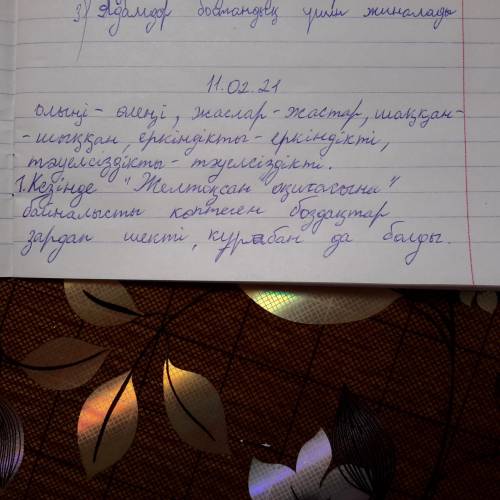 3) Адамдар бостандық үшін жиналады
11.02.21
олыңі - өлеңі, жаслар - жастар, шаққан-
- шыққан, еркіндікты - еркіндікті,
тәуелсіздікты - тәуелсіздікті.
1. Кезінде "Желтоқсан оқиғасына"
байналысты көптеген боздақтар
зардап шекті, құрабан да болды.